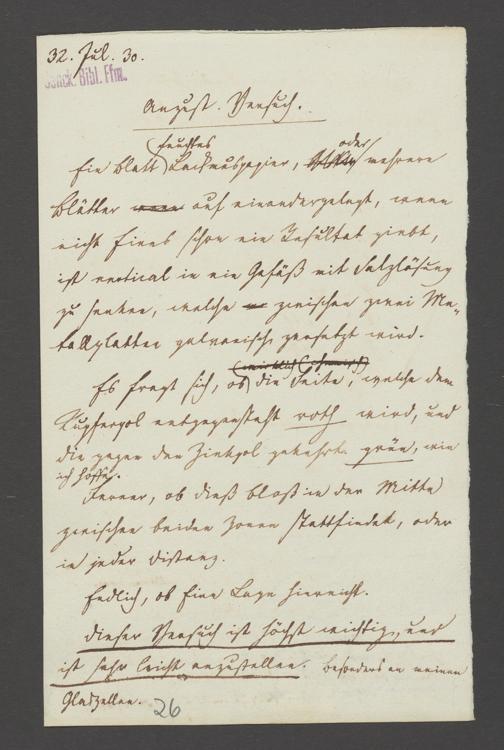 32. Jul. 30.
Senck. Bibl. Ffm.
Anzust. Versuch.
feuchtes oder
Ein Blatt Lackmuspapier, mehrere
Blätter auf einandergelegt, wenn
nicht Eines schon ein Resultat giebt,
ist vertical in ein Gefäß mit Salzlösung
zu senken, welche zwischen zwei Me-
tallplatten galvanisch zersetzt wird.
Es fragt sich, ob die Seite, welche dem
Kupferpol entgegensteht roth wird, und
die gegen den Zinkpol gekehrte grün, wie
ich hoffe.
Ferner, ob dieß bloß in der Mitte
zwischen beiden Zonen stattfindet, oder
in jeder Distanz.
Endlich, ob Eine Lage hinreicht.
Dieser Versuch ist höchst wichtig, und
ist sehr leicht anzustellen. besonders an meinen
Glaszellen. 26